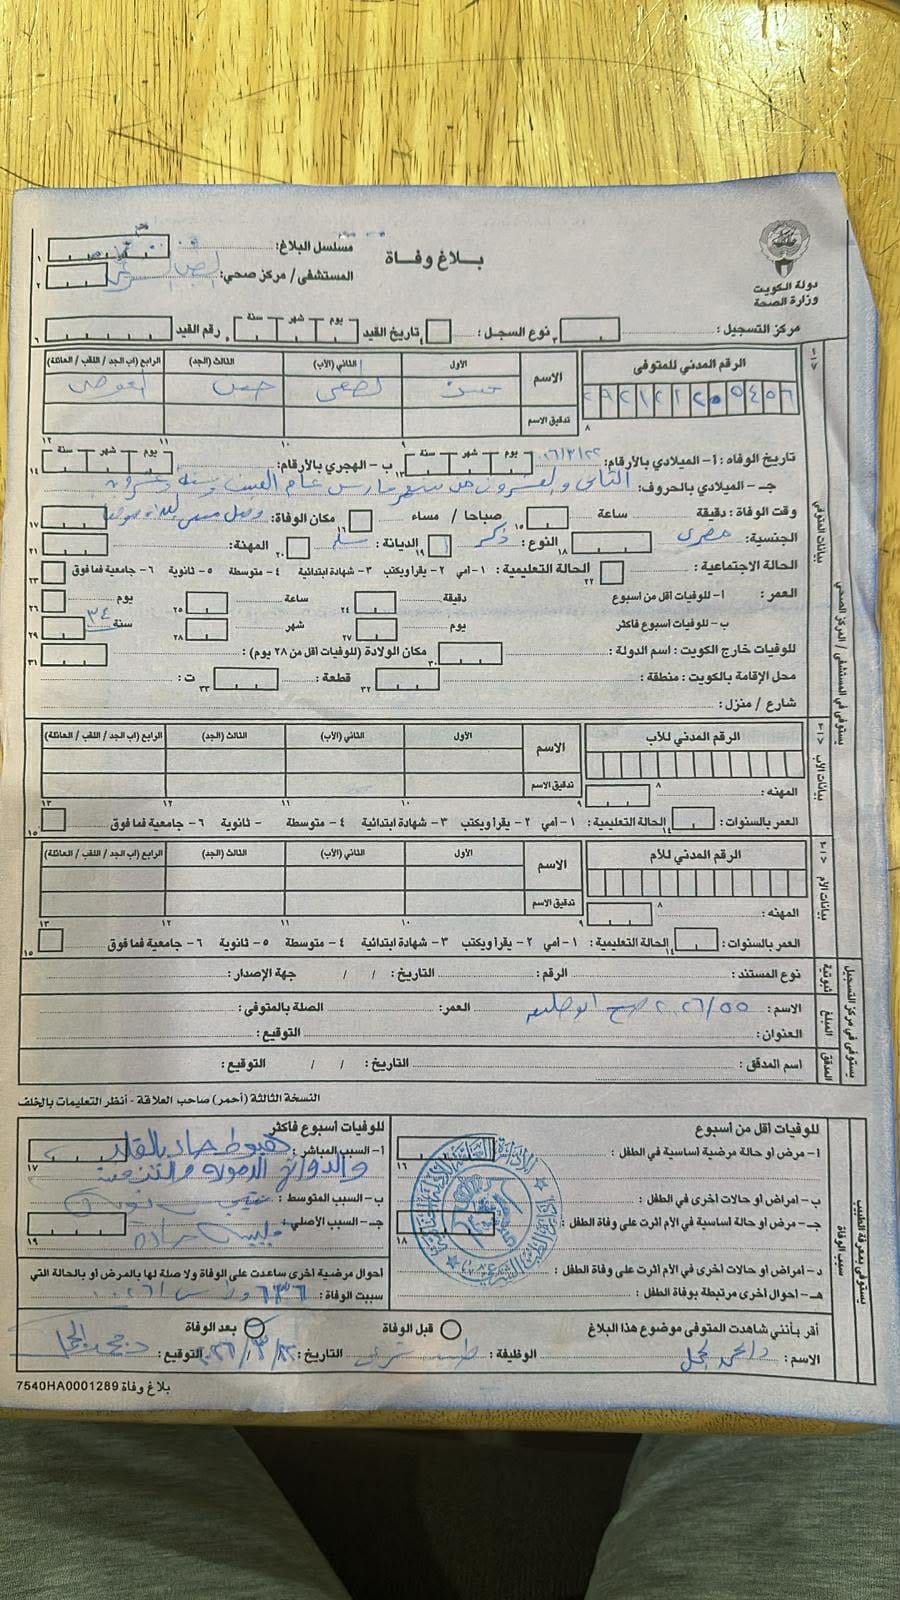 دولة الكويت
وزارة الصحة
بـلاغ وفـاة
مسلسل البلاغ:
المستشفى / مركز صحي:
مركز التسجيل: نوع السجل: تاريخ القيد يوم شهر سنة رقم القيد
الرقم المدني للمتوفى
الاسم الأول الثاني (الأب) الثالث (الجد) الرابع (اب الجد / اللقب / العائلة)
حسن حسن العوضي
تدقيق الاسم
تاريخ الوفاه: أ- الميلادي بالأرقام: يوم شهر سنة ب- الهجري بالأرقام: يوم شهر سنة
جـ- الميلادي بالحروف: الثاني والعشرون من شهر مارس عام ألفين وستة وعشرون
وقت الوفاة: دقيقة ساعة صباحا / مساء مكان الوفاة: وصل
الجنسية: مصري النوع: ذكر الديانة: مسلم المهنة:
الحالة الاجتماعية: الحالة التعليمية: ١- أمي ٢- يقرأ ويكتب ٣- شهادة ابتدائية ٤- متوسطة ٥- ثانوية ٦- جامعية فما فوق
العمر: أ- للوفيات أقل من أسبوع دقيقة ساعة يوم
ب- للوفيات أسبوع فأكثر يوم شهر سنة ٣٤
للوفيات خارج الكويت: اسم الدولة: مكان الولادة (للوفيات اقل من ٢٨ يوم):
محل الإقامة بالكويت: منطقة: قطعة: ت:
شارع / منزل:
بيانات المتوفي
يستوفى في المستشفى / المركز الصحي
الرقم المدني للأب
الاسم الأول الثاني (الأب) الثالث (الجد) الرابع (اب الجد / اللقب / العائلة)
تدقيق الاسم
المهنه:
العمر بالسنوات: الحالة التعليمية: ١- أمي ٢- يقرأ ويكتب ٣- شهادة ابتدائية ٤- متوسطة - ثانوية ٦- جامعية فما فوق
بيانات الأب
الرقم المدني للأم
الاسم الأول الثاني (الأب) الثالث (الجد) الرابع (اب الجد / اللقب / العائلة)
تدقيق الاسم
المهنه:
العمر بالسنوات: الحالة التعليمية: ١- أمي ٢- يقرأ ويكتب ٣- شهادة ابتدائية ٤- متوسطة ٥- ثانوية ٦- جامعية فما فوق
بيانات الأم
نوع المستند: الرقم: التاريخ: / / جهة الإصدار:
الاسم: ٢٠٢٦/٥٥ العمر: الصلة بالمتوفى:
العنوان: التوقيع:
اسم المدقق: التاريخ: / / التوقيع:
ثبوتية
المبلغ
المدقق
يستوفى في مركز التسجيل
النسخة الثالثة (أحمر) صاحب العلاقة - أنظر التعليمات بالخلف
للوفيات أقل من أسبوع
أ- مرض أو حالة مرضية أساسية في الطفل:
ب- أمراض أو حالات أخرى في الطفل:
جـ- مرض أو حالة أساسية في الأم أثرت على وفاة الطفل:
د- أمراض أو حالات أخرى في الأم أثرت على وفاة الطفل:
هـ- أحوال أخرى مرتبطة بوفاة الطفل:
للوفيات أسبوع فأكثر
أ- السبب المباشر: هبوط حاد بالقلب
والدورة الدموية والتنفسية
ب- السبب المتوسط:
جـ- السبب الأصلي:
أحوال مرضية أخرى ساعدت على الوفاة ولا صلة لها بالمرض أو بالحالة التي
سببت الوفاة:
يستوفى بمعرفة الطبيب
سبب الوفاة
أقر بأنني شاهدت المتوفى موضوع هذا البلاغ قبل الوفاة بعد الوفاة
الاسم: الوظيفة: طبيب شرعي التاريخ: التوقيع:
بلاغ وفاة 7540HA0001289